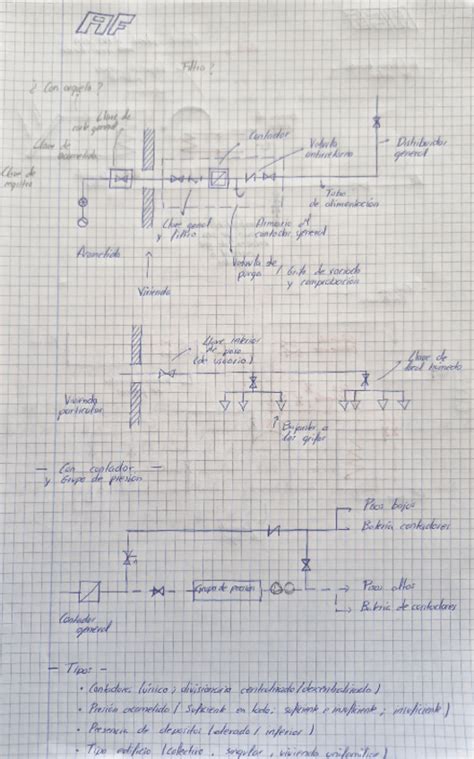 AF
Filtro?
¿Con arqueta?
Llave de
corte general
Llave de
acometida
Llave de
registro
Contador
Valvula
antirretorno
Distribuidor
general
Tubo
de alimentación
Llave general
y filtro
Armario del
contador general
Acometida
Valvula de
purga / Grifo de vaciado
y comprobación
Vivienda
Llave interior
de paso
(de usuario)
Llave de
local humedo
Vivienda
particular
Bajantes a
los grifos
- Con contador -
y Grupo de presión
Pisos bajos
Bateria contadores
Grupo de presión
Pisos altos
Bateria de contadores
Contador
general
- Tipos -
• Contadores (único; divisionario centralizado/descentralizado)
• Presión acometida (suficiente en todo; suficiente e insuficiente; insuficiente)
• Presencia de depositos (elevado / inferior)
• Tipo edificio (colectivo, singular, vivienda unifamiliar)